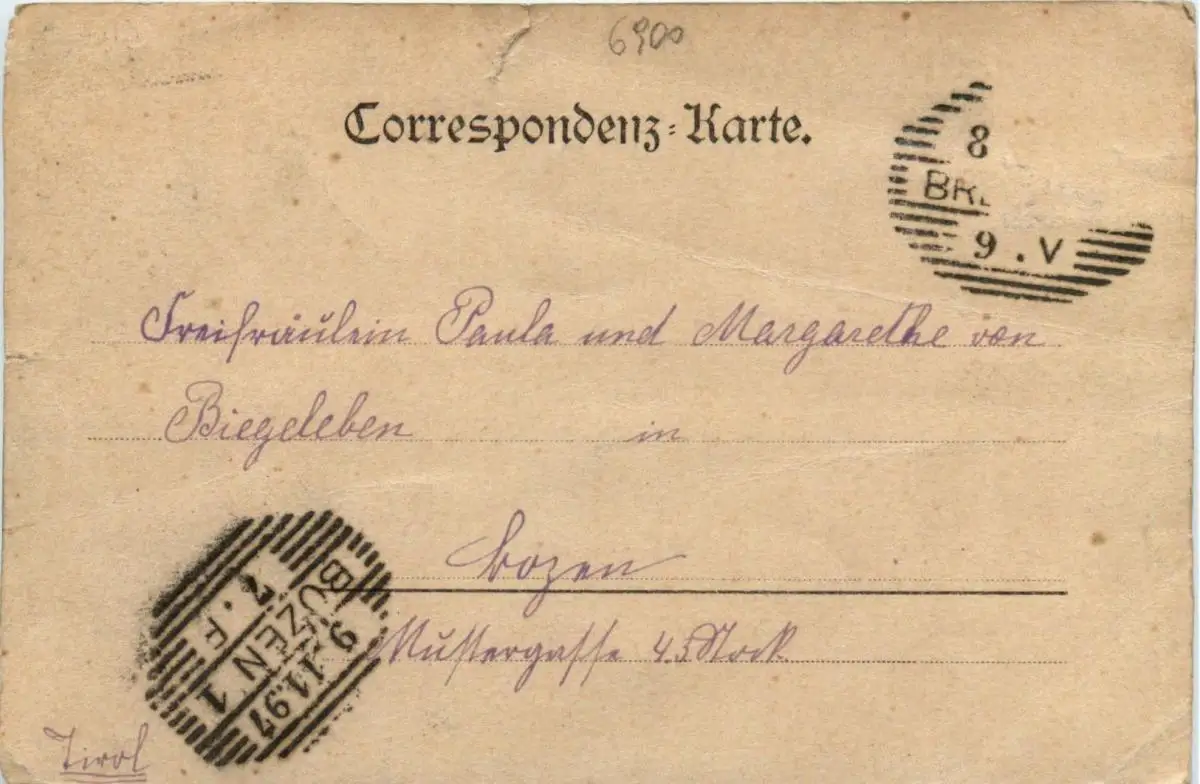 6900
Correspondenz-Karte.
8
BRE
9 . V
Freifräulein Paula und Margarethe von
Biegeleben in
Bozen
Mustergasse 4. Stock
BOZEN 1
9.11.97
7 . F
Tirol